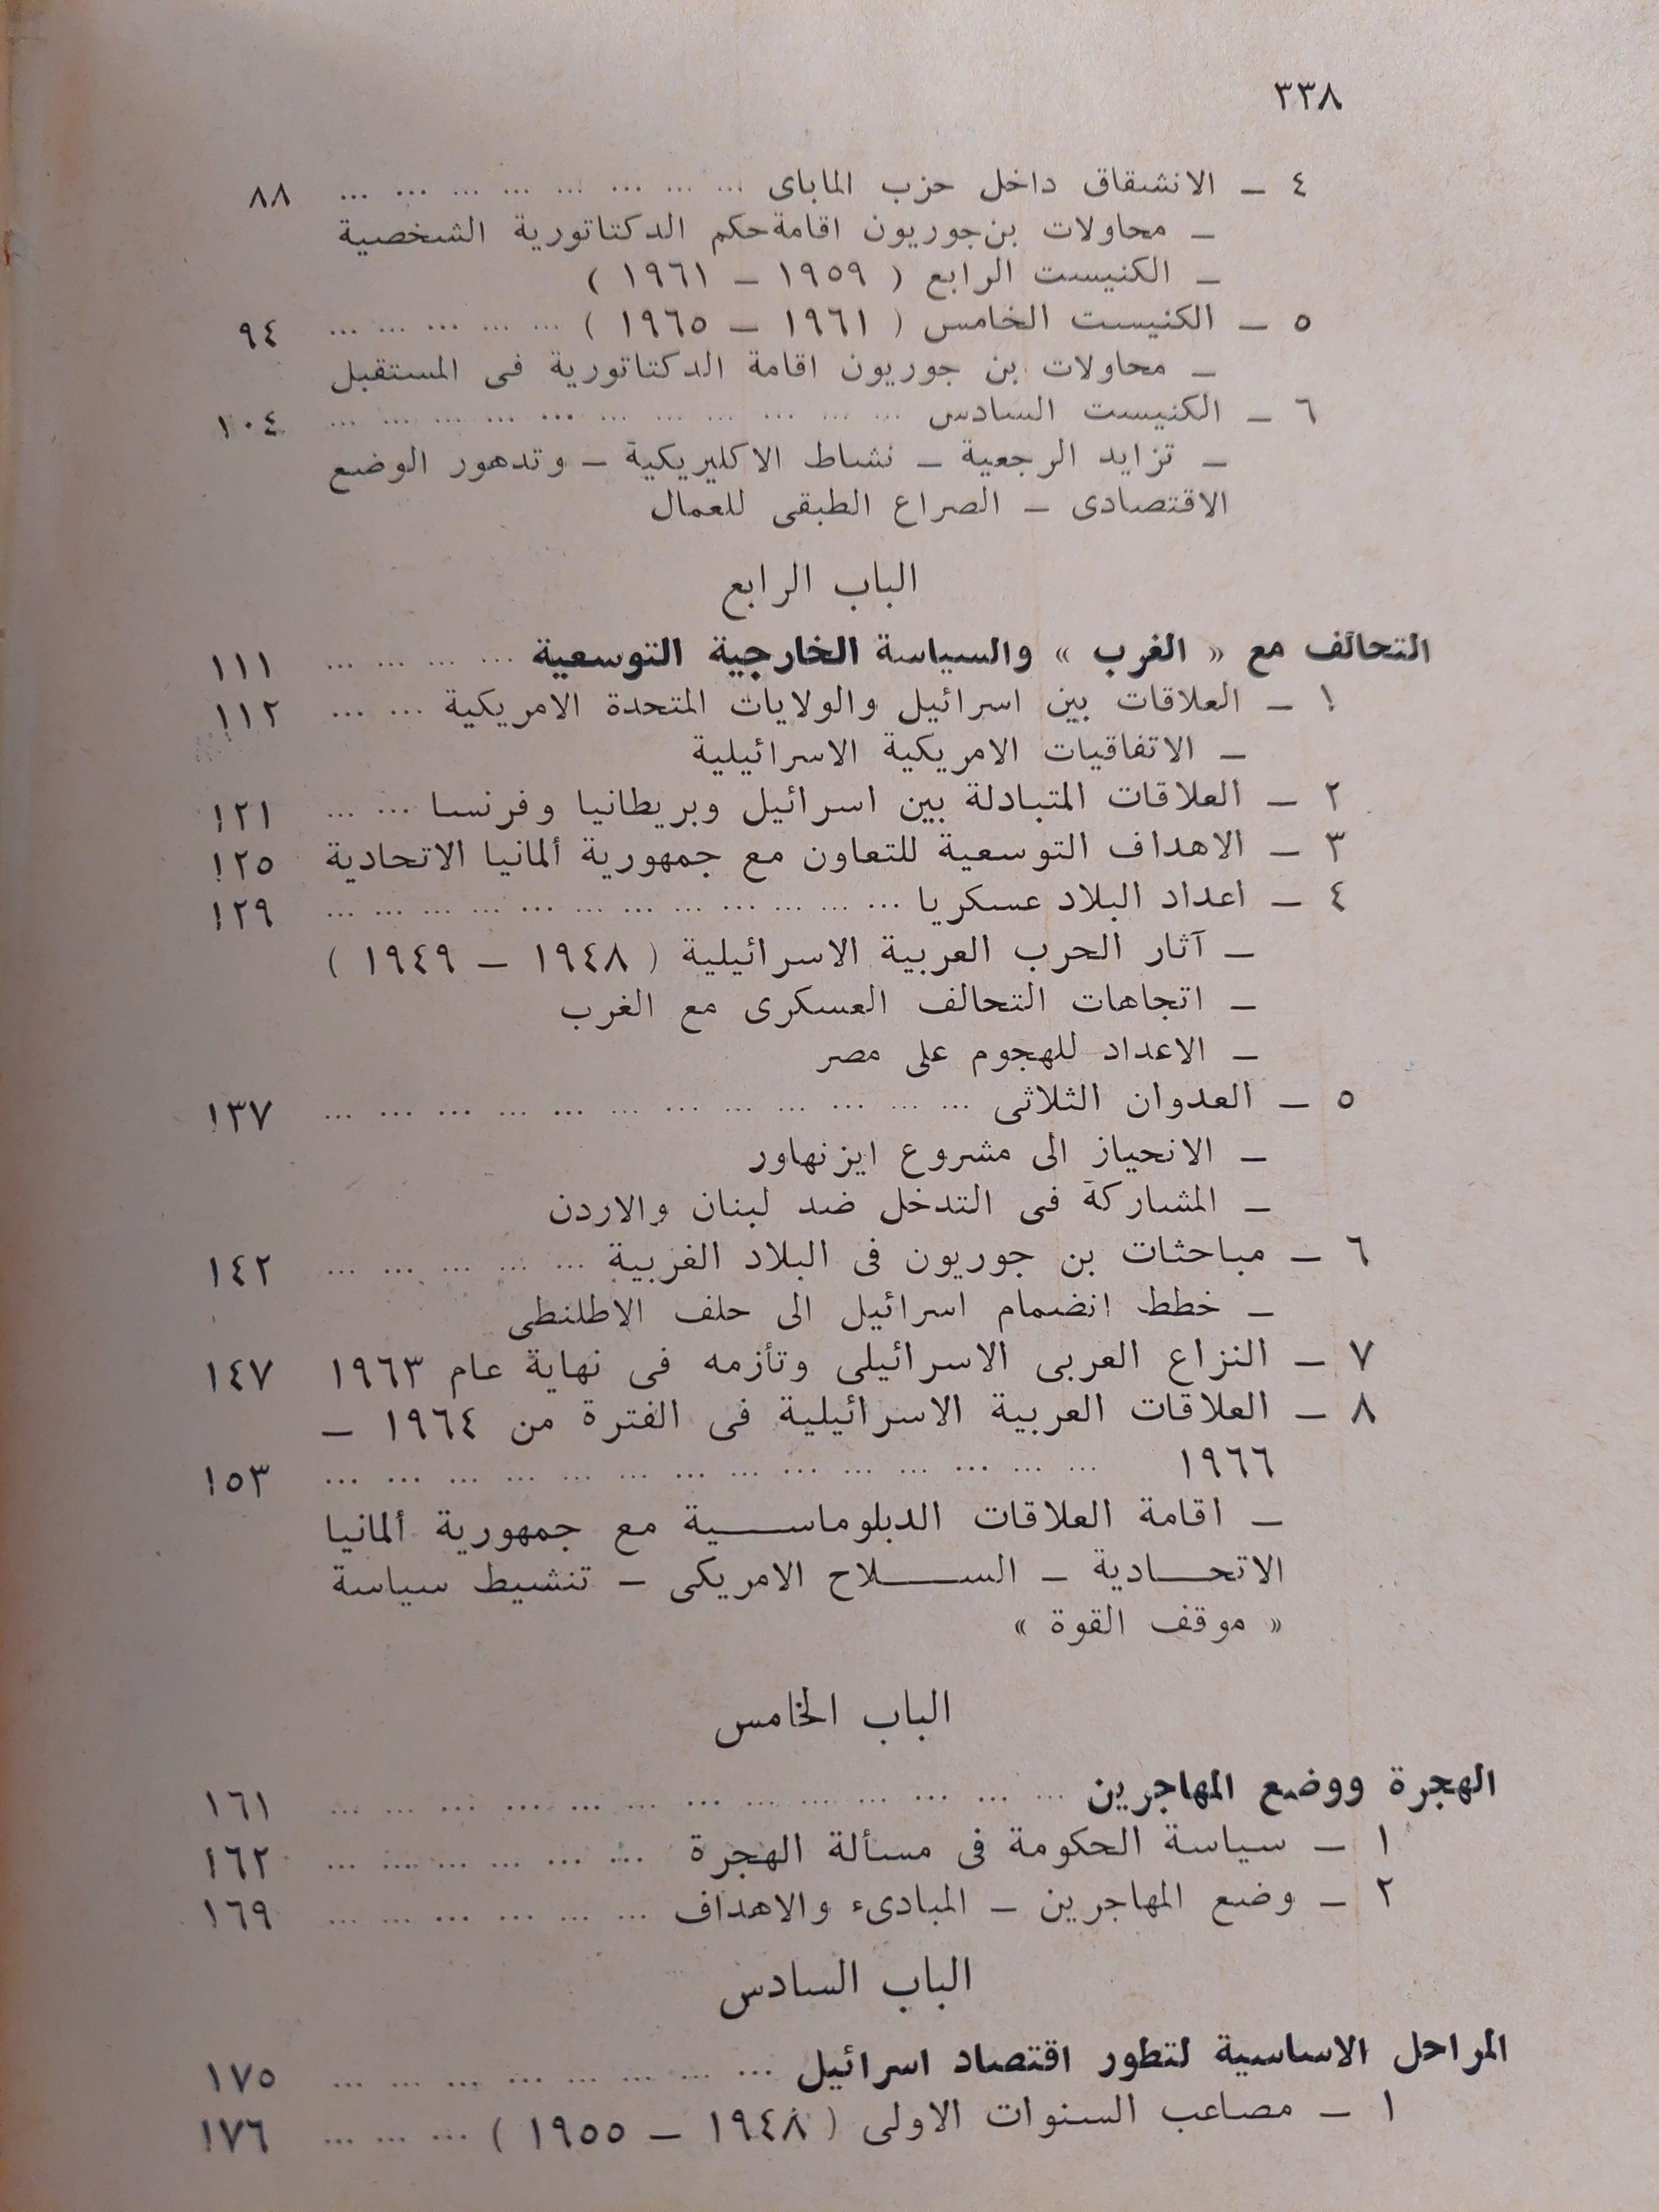 ٣٣٨
٤ – الانشقاق داخل حزب الماباى ... ... ... ... ... ... ... ... ٨٨
– محاولات بن جوريون اقامة حكم الدكتاتورية الشخصية
– الكنيست الرابع ( ١٩٥٩ – ١٩٦١ )
٥ – الكنيست الخامس ( ١٩٦١ – ١٩٦٥ ) ... ... ... ... ... ٩٤
– محاولات بن جوريون اقامة الدكتاتورية فى المستقبل
٦ – الكنيست السادس ... ... ... ... ... ... ... ... ... ... ... ١٠٤
– تزايد الرجعية – نشاط الاكليريكية – وتدهور الوضع
الاقتصادى – الصراع الطبقى للعمال
الباب الرابع
التحالف مع « الغرب » والسياسة الخارجية التوسعية ... ... ... ... ١١١
١ – العلاقات بين اسرائيل والولايات المتحدة الامريكية ... ... ١١٢
– الاتفاقيات الامريكية الاسرائيلية
٢ – العلاقات المتبادلة بين اسرائيل وبريطانيا وفرنسا ... ... ١٢١
٣ – الاهداف التوسعية للتعاون مع جمهورية ألمانيا الاتحادية ١٢٥
٤ – اعداد البلاد عسكريا ... ... ... ... ... ... ... ... ... ... ... ... ١٢٩
– آثار الحرب العربية الاسرائيلية ( ١٩٤٨ – ١٩٤٩ )
– اتجاهات التحالف العسكرى مع الغرب
– الاعداد للهجوم على مصر
٥ – العدوان الثلاثى ... ... ... ... ... ... ... ... ... ... ... ... ١٣٧
– الانحياز الى مشروع ايزنهاور
– المشاركة فى التدخل ضد لبنان والاردن
٦ – مباحثات بن جوريون فى البلاد الغربية ... ... ... ... ... ١٤٢
– خطط انضمام اسرائيل الى حلف الاطلنطى
٧ – النزاع العربى الاسرائيلى وتأزمه فى نهاية عام ١٩٦٣ ١٤٧
٨ – العلاقات العربية الاسرائيلية فى الفترة من ١٩٦٤ –
١٩٦٦ ... ... ... ... ... ... ... ... ... ... ... ... ... ... ١٥٣
– اقامة العلاقات الدبلوماسية مع جمهورية ألمانيا
الاتحادية – السلاح الامريكى – تنشيط سياسة
« موقف القوة »
الباب الخامس
الهجرة ووضع المهاجرين ... ... ... ... ... ... ... ... ... ... ... ... ... ١٦١
١ – سياسة الحكومة فى مسألة الهجرة ... ... ... ... ... ... ١٦٢
٢ – وضع المهاجرين – المبادىء والاهداف ... ... ... ... ... ... ١٦٩
الباب السادس
المراحل الاساسية لتطور اقتصاد اسرائيل ... ... ... ... ... ... ... ... ١٧٥
١ – مصاعب السنوات الاولى ( ١٩٤٨ – ١٩٥٥ ) ... ... ... ١٧٦